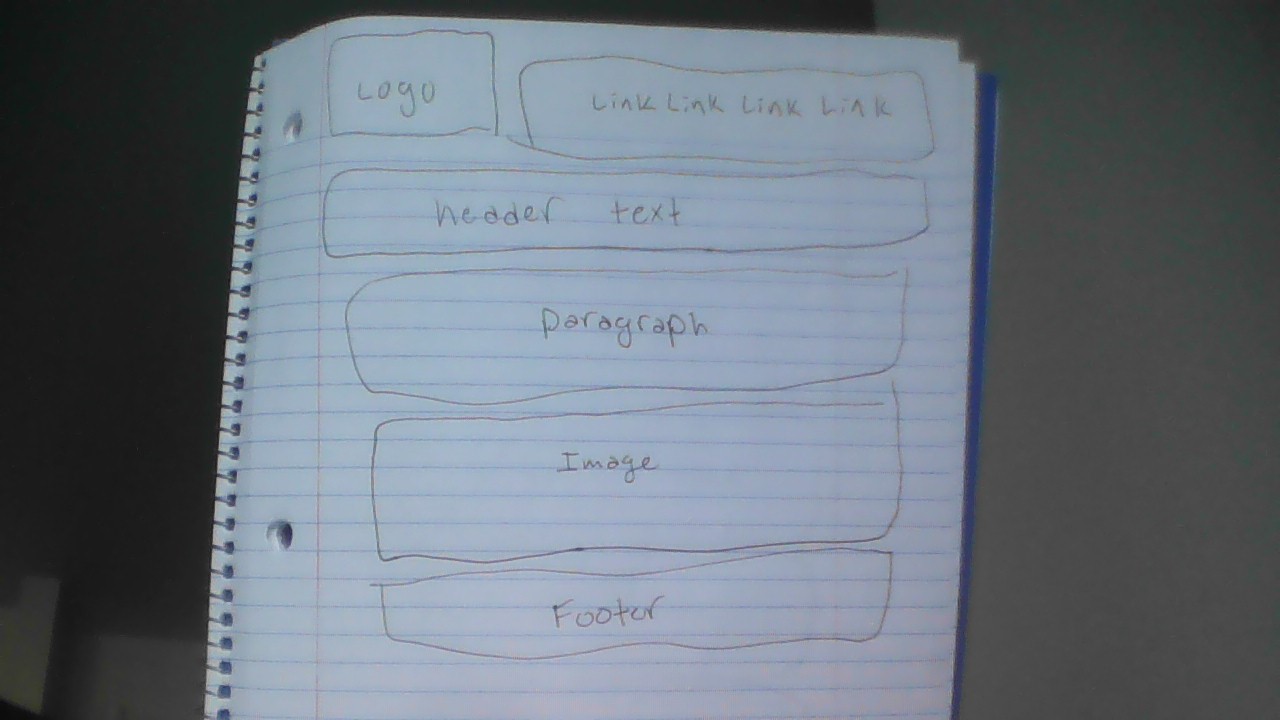 Logo
Link Link Link Link
header text
paragraph
Image
Footer